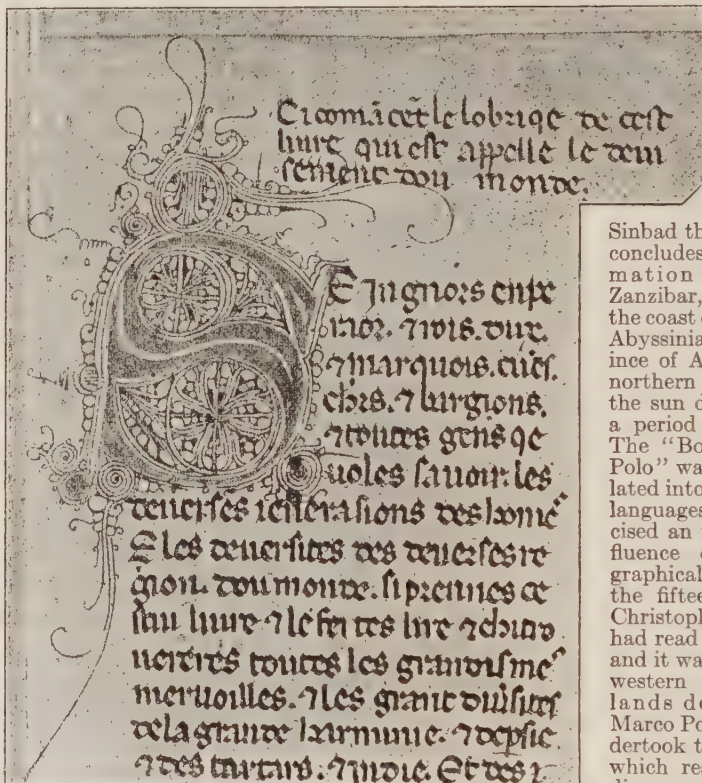 Ci comācet le lobriqe de cest
liure qui est appelle le deui
sement dou monde.
SEingnors enpe
raor. ⁊ rois. dux.
⁊ marquois. cues.
chrs. ⁊ burgions.
⁊ toutes gens qe
uoles sauoir les
deuerses ienerasions des home
E les deuersites des deuerses re
gion. dou monde. si prennes ce
stui liure ⁊ le feites lire ⁊ chi
uereres toutes les grandisme
meruoilles. ⁊ les grant diuisites
de la grande harminie. ⁊ de psie
⁊ des tartars. ⁊ indie. Et des
Sinbad th
concludes
mation
Zanzibar,
the coast
Abyssinia
ince of A
northern
the sun d
a period
The “Bo
Polo” wa
lated into
languages
cised an
fluence
graphical
the fiftee
Christoph
had read
and it wa
western
lands de
Marco Po
dertook t
which re